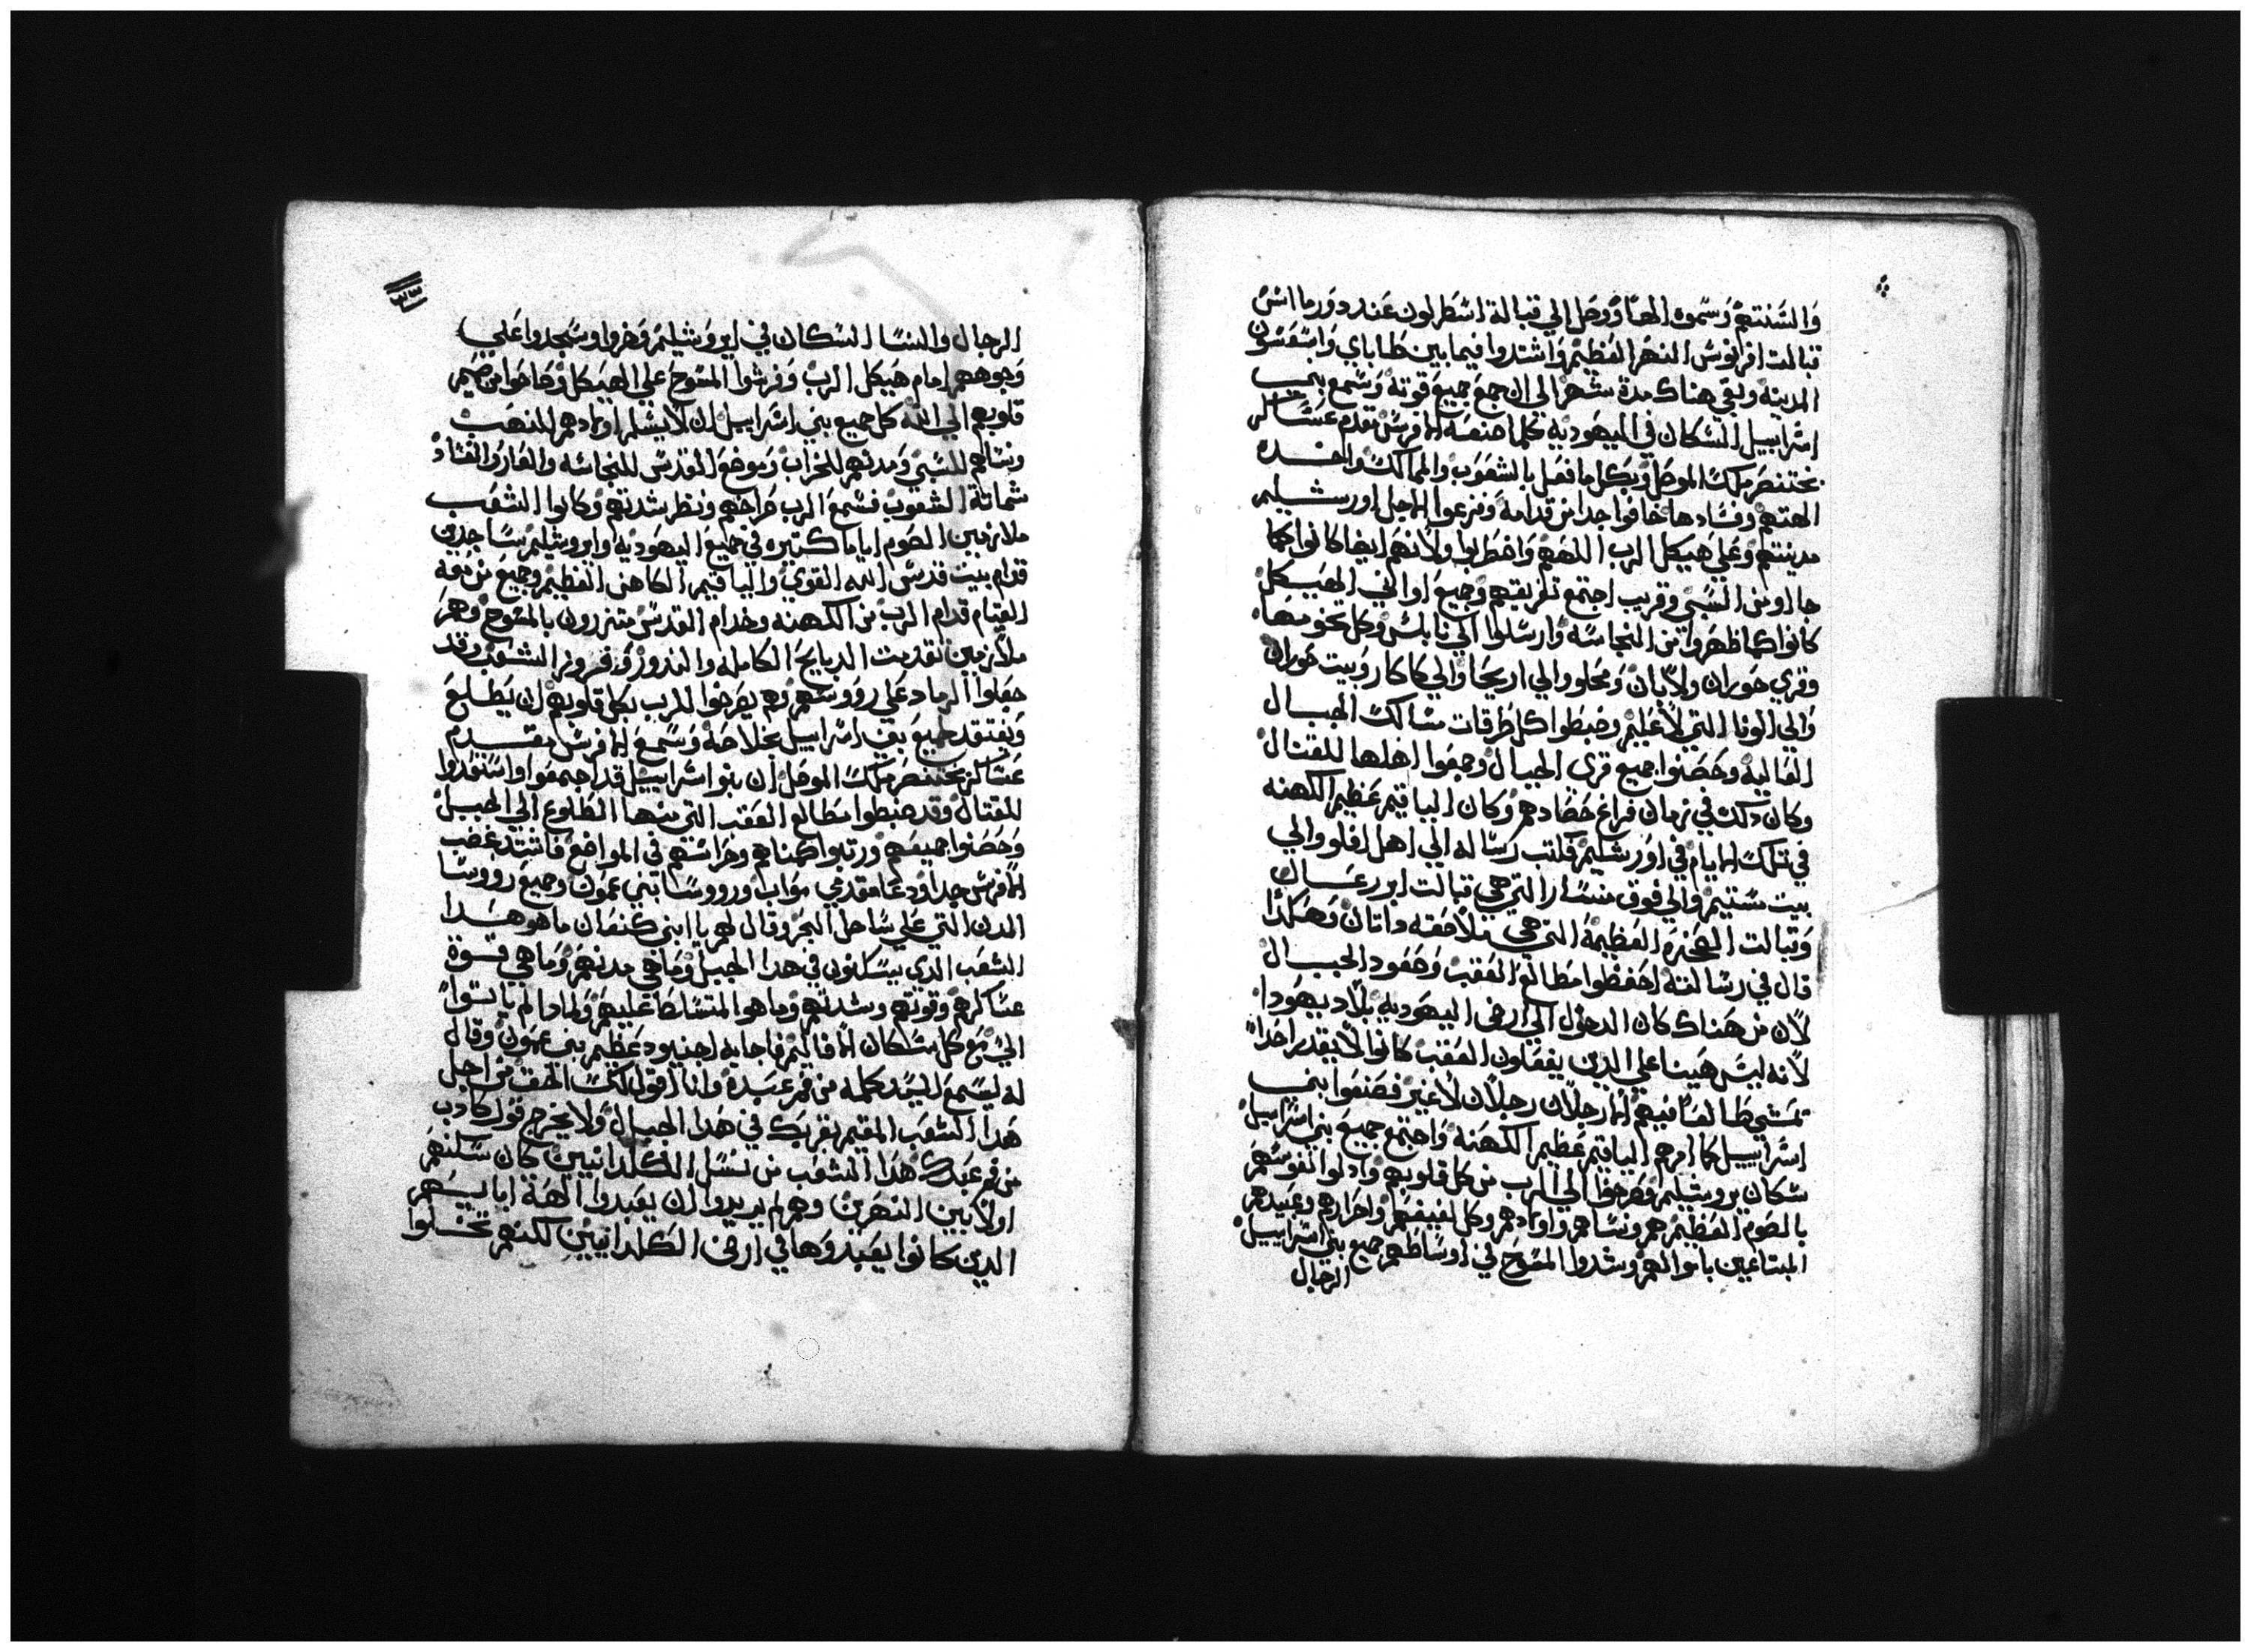 والسنتهم وسموه الها ووصل الي قبالة اسطرلون عند دورما اش
قبالت افرانوس النهر العظيم واشتدوا فيما بين طاباي واسعسون
المدينه وبقي هناك مدة شهر الي ان جمع جميع قوته وسمع بني
اسراييل السكان في اليهوديه كلما صنعه الافرنس مقدم عساكر
بختنصر ملك الموصل وبكل ما فعل بالشعوب والممالك واخده
الهتهم وفسادها خافوا جدا من قدامه وفزعوا لاجل اورشليم
مدينتهم وعلي هيكل الرب الاههم واضطربوا ولانهم ايضا كانوا كما
جااو من السبي وقريب اجتمع تفريقهم وجميع اواني الهيكل
كانوا كما ظهروا من النجاسه وارسلوا الي نابلس وكل تخومها
وقري حوران ولابان ومحلو والي اريحا والي كاكار وبيت حوران
والي الونا التي لاعليم وضبطوا كل طرقات مسالك الجبال
العاليه وحصنوا جميع قري الجبال وجمعوا اهلها للقتال
وكان دلك في زمان فراغ حصادهم وكان الياقيم عظيم الكهنه
في تلك الايام في اورشليم فكتب رساله الي اهل افلو والي
بيت مستيم والي فوق منسارا التي هي قبالت ابررعال
وقبالت الصخره العظيمة التي هي ملاصقه داتان وهكدا
قال في رسالته احفظوا مطالع العقب وصعود الجبال
لان من هناك كان الدخول الي ارض اليهوديه بلاد يهودا
لانه ليس هينا علي الدين يفعلون العقب كانوا لا يقدر احدا
تمشي طالعا فيهم الا رجلان رجلان لا غير فصنعوا بني
اسراييل كما امرهم الياقيم عظيم الكهنه واجتمع جميع بني اسراييل
سكان يروشليم فصرخوا الي الرب من كل قلوبهم وادلوا نفوسهم
بالصوم العظيم هم ونساهم واولادهم وكل لفيفهم واحرارهم وعبيدهم
المبتاعين باموالهم وشدوا المسوح في اوساطهم جميع بني اسراييل
الرجال
٣٣
الرجال والنسا السكان في ايروشليم وخروا وسجدوا علي
وجوههم امام هيكل الرب وفرشوا المسوح علي الهيكل وصاحوا من صميم
قلوبهم الي الله كل جميع بني اسراييل ان لا يسلم اولادهم للنهب
ونساهم للسبي ومدنهم للخراب وموضع المقدس للنجاسه والعار والفساد
شماتة الشعوب فسمع الرب صراخهم ونظر شدتهم وكانوا الشعب
ملازمين الصوم اياما كتيره في جميع اليهوديه وايروشليم ساجدين
قدام بيت قدس الله القوي والياقيم الكاهن العظيم وجميع من معه
القيام قدام الرب من الكهنه وخدام القدس متزرون بالمسوح وهم
ملازمين تقدمت الدبايح الكامله والندور وفرور الشعب وقد
جعلوا الرماد علي رووسهم وهم يصرخوا للرب بكل قلوبهم ان يطلع
ويفتقد جميع بني اسراييل بخلاصه وسمع الافرنس مقدم
عساكر بختنصر ملك الموصل ان بنوا اسراييل قد اجتمعوا واستعدوا
للقتال وقد ضبطوا مطالع العقب التي منها الطلوع الي الجبل
وحصنوا جميعهم ورتبوا كمناهم وحراسهم في المواضع فاشتد غضب
الافرنس جدا ودعا مقدمي مواب ورووسا بني عمون وجميع رووسا
المدن التي علي ساحل البحر وقال لهم يا ابني كنعان ما هو هدا
الشعب الدي يسكنون في هدا الجبل وما هي مدنهم وما هي قوة
عساكرهم وقوتهم وشدتهم وما هو المتسلط عليهم ولمادا لم ياتوا
الي مع كل سكان الاقاليم فاجابه اجنيود عظيم بني عمون وقال
له ليسمع السيد كلمه من فم عبده وانا اقول لك الحق من اجل
هدا الشعب المقيم بقربك في هدا الجبال ولا يخرج قول كادب
من فم عبدك هدا الشعب من نسل الكلدانيين كان سكنهم
اولا بين النهرين وهم لم يريدوا ان يعبدوا الهة اباييهم
الدين كانوا يعبدوها في ارض الكلدانيين لكنهم تخلوا